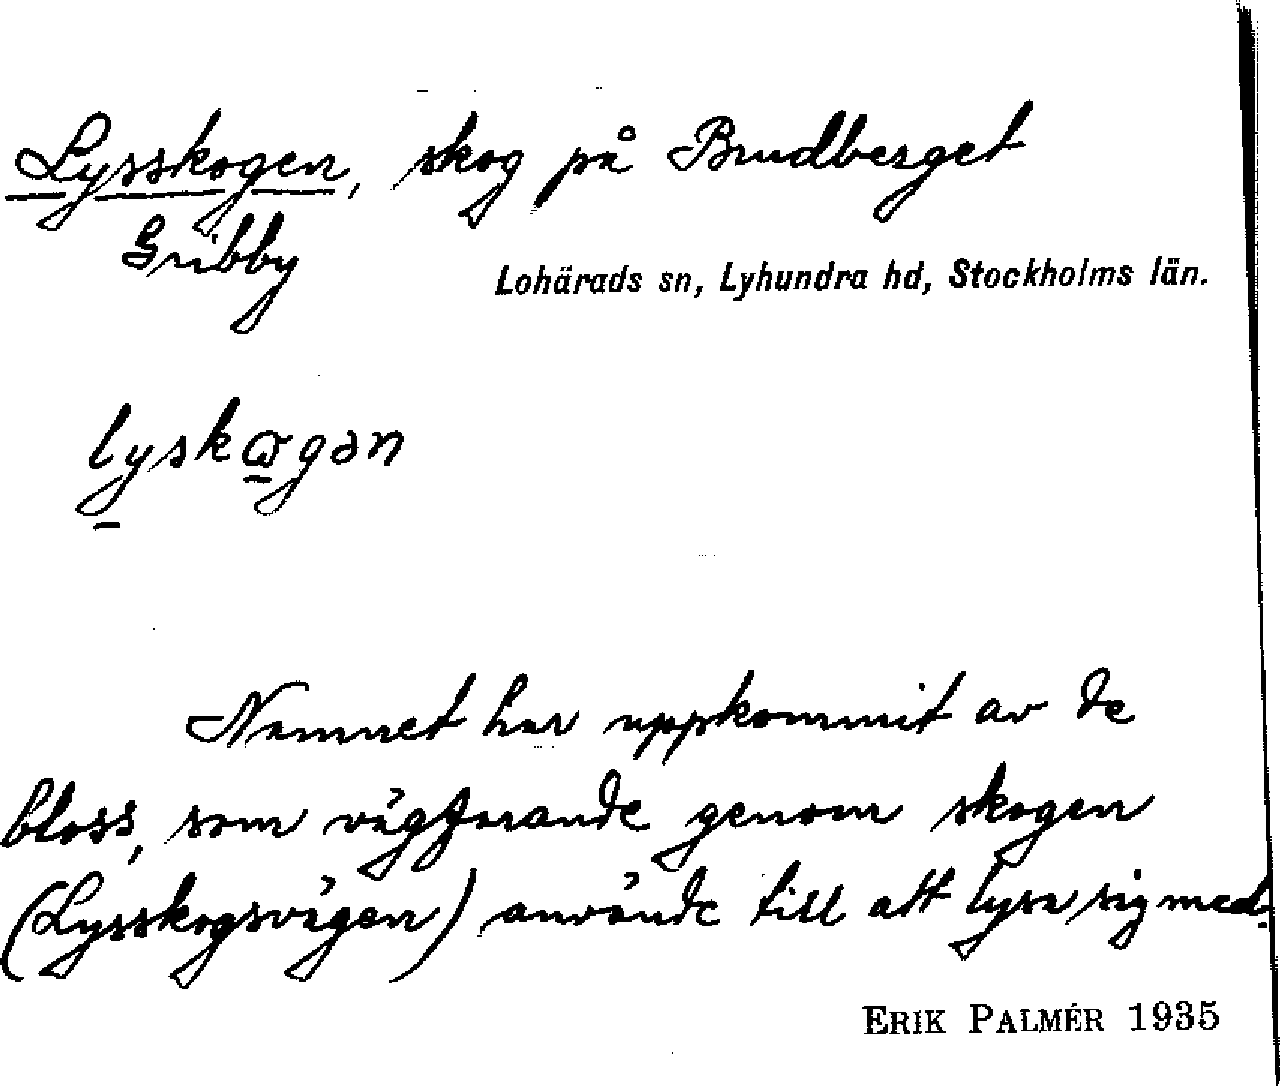 Lysskogen, skog på Brudberget
Gribby
Lohärads sn, Lyhundra hd, Stockholms län.
lyskωgən
Namnet har uppkommit av de
bloss, som vägfarande genom skogen
(Lysskogsvägen) använde till att lysa sig med.
ERIK PALMÉR 1935